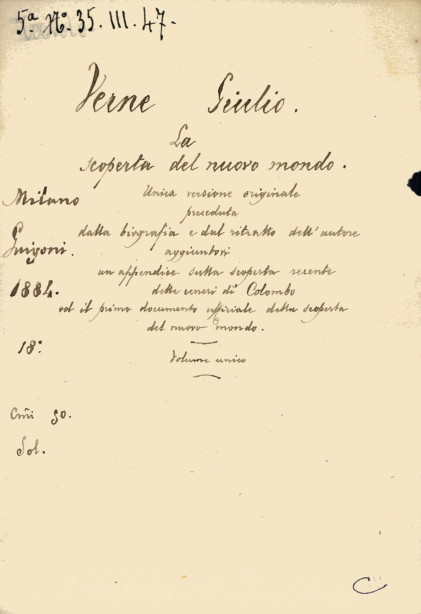 5ª Nº 35. III. 47.
Verne Giulio.
La
scoperta del nuovo mondo.
Milano
Unica versione originale
preceduta
dalla biografia e dal ritratto dell'autore
Guigoni.
aggiuntovi
un appendise sulla scoperta recente
1884.
delle ceneri di Colombo
ed il primo documento ufficiale della scoperta
del nuovo mondo.
18º
Volume unico
Cmi 90.
Sol.
C